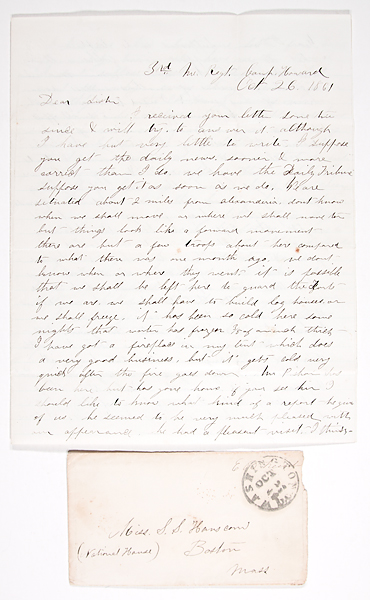 3rd Me Regt. Camp Howard
Oct 26 1861
Dear Sister
I received your letter some time
since & will try to answer it although
I have but very little to write I suppose
you get the daily news sooner & more
correct than I do. we have the Daily Tribune
suppose you get it as soon as we do. We are
situated about 2 miles from alexandria dont know
when we shall move or where we shall move to
but things look like a forward movement
there are but a few troops about here compared
to what there was one month ago. we dont
know when or where they went it is possible
that we shall be left here to guard the forts
if we are we shall have to build log houses or
we shall freeze. it has been so cold here some
nights that water has frozen inch thick
I have got a fireplace in my tent which does
a very good business, but it gets cold very
quick after the fire goes down. Mr has
been here but has gone home if you see him I
should like to know what kind of a report he gives
of us. he seemed to be very much pleased with
our appearance he had a pleasant visit I think
WASHINGTON
OCT
Miss. S. S. Hanscom
(National House) Boston
Mass